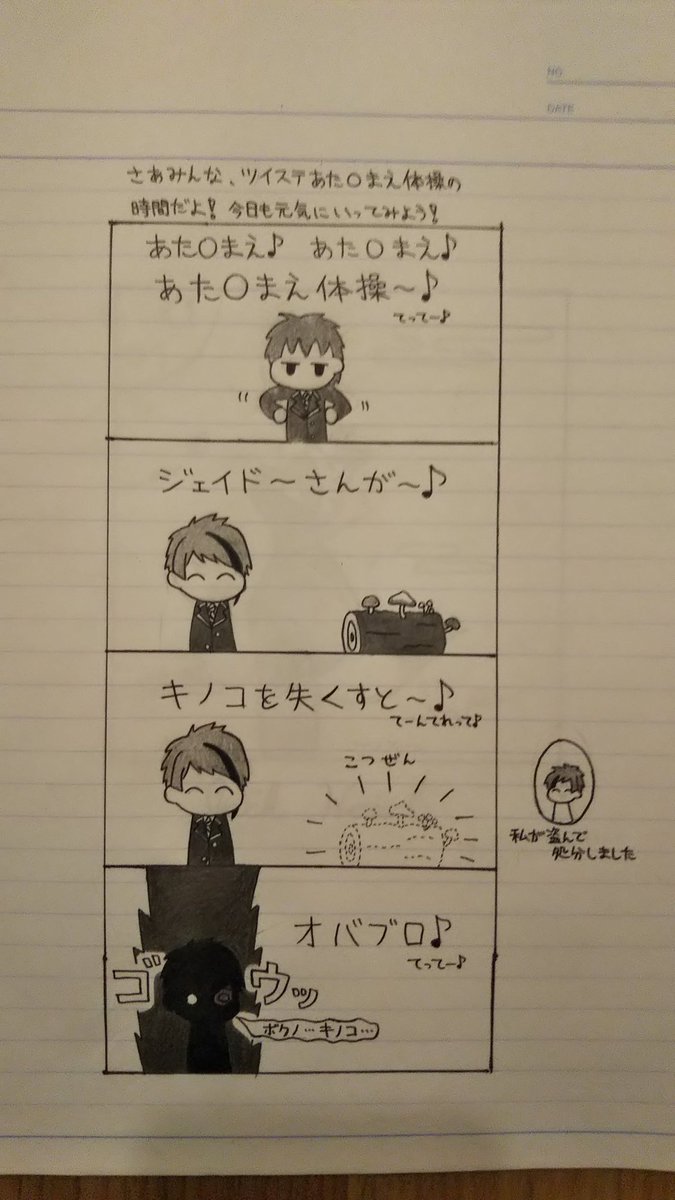 NO
DATE
さあみんな、ツイステあた〇まえ体操の
時間だよ! 今日も元気にいってみよう!
あた〇まえ♪ あた〇まえ♪
あた〇まえ体操〜♪
てってー♪
ジェイド〜さんが〜♪
キノコを失くすと〜♪
てーんてれって♪
こつぜん
私が盗んで
処分しました
オバブロ♪
てってー♪
ゴウッ
ボクノ…キノコ…